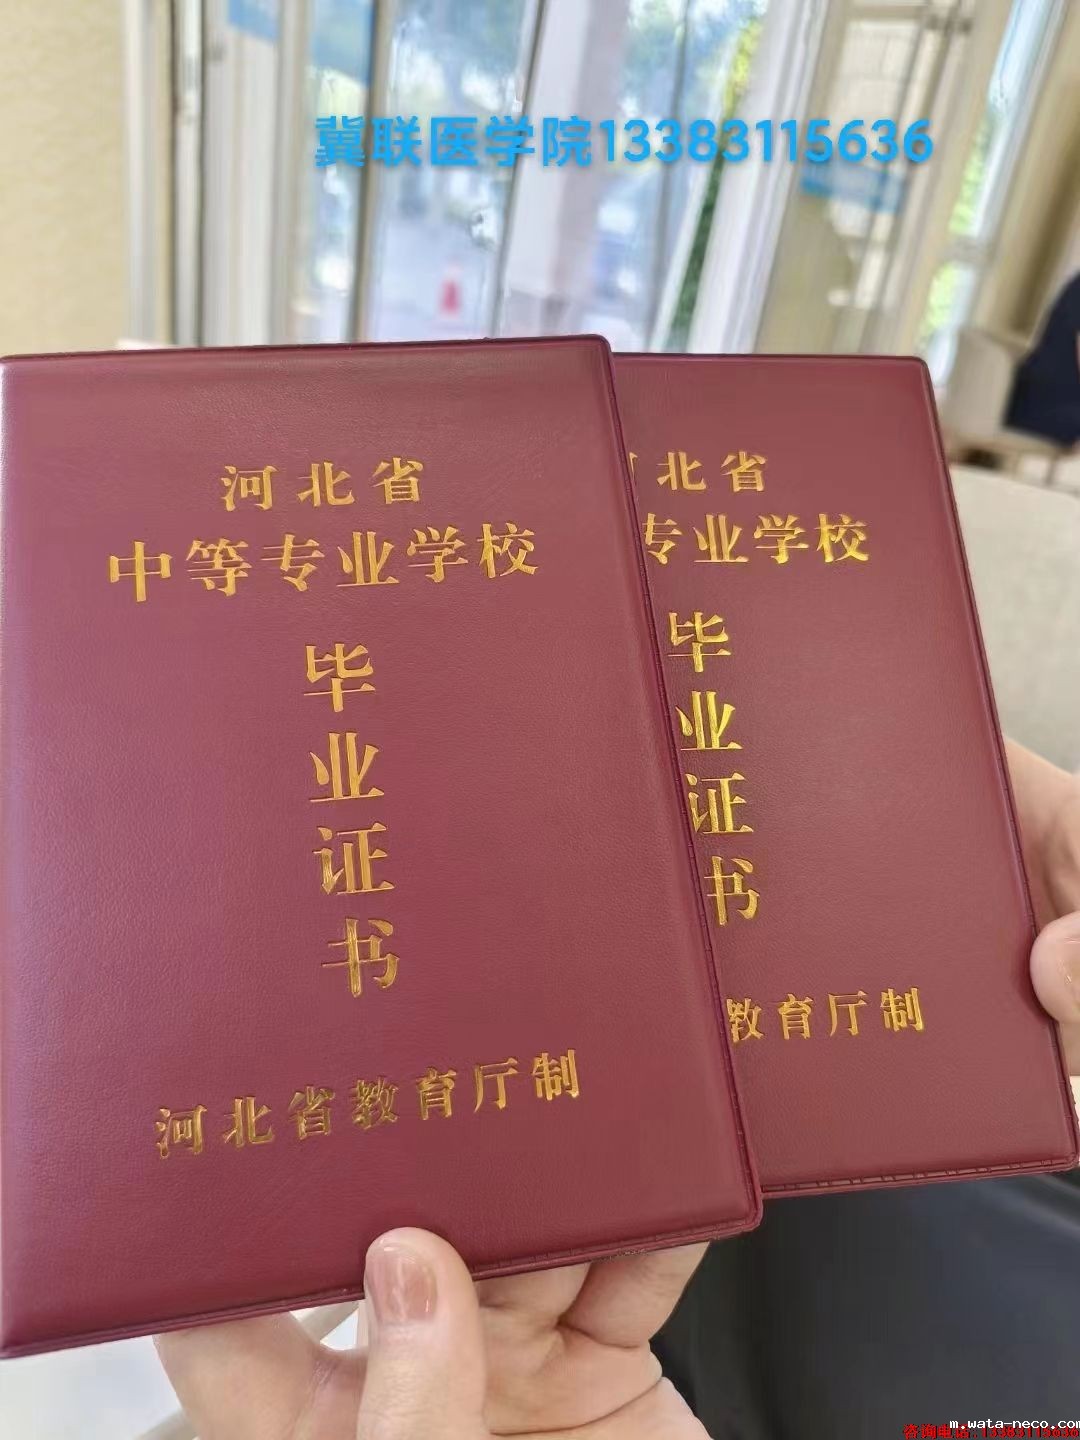 冀联医学院13383115636
河北省
中等专业学校
毕
业
证
书
河北省教育厅制
北省
专业学校
毕
业
证
书
教育厅制
m.wata-neco.com
咨询电话:13383115636